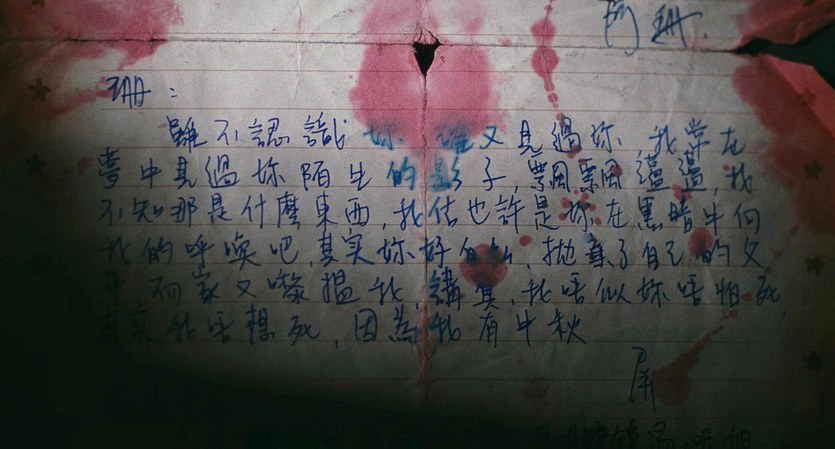 阿珊
珊：
雖不認識妳 確又見過妳 我常在
夢中見過妳陌生的影子,飄飄盪盪,我
不知那是什麼東西,我估也許是妳在黑暗中向
我的呼喚吧,其實妳好自私,拋棄了自己的父
母 而家又嚟搵我,講真,我唔似妳唔怕死,
其實我唔想死,因為我有中秋
屏